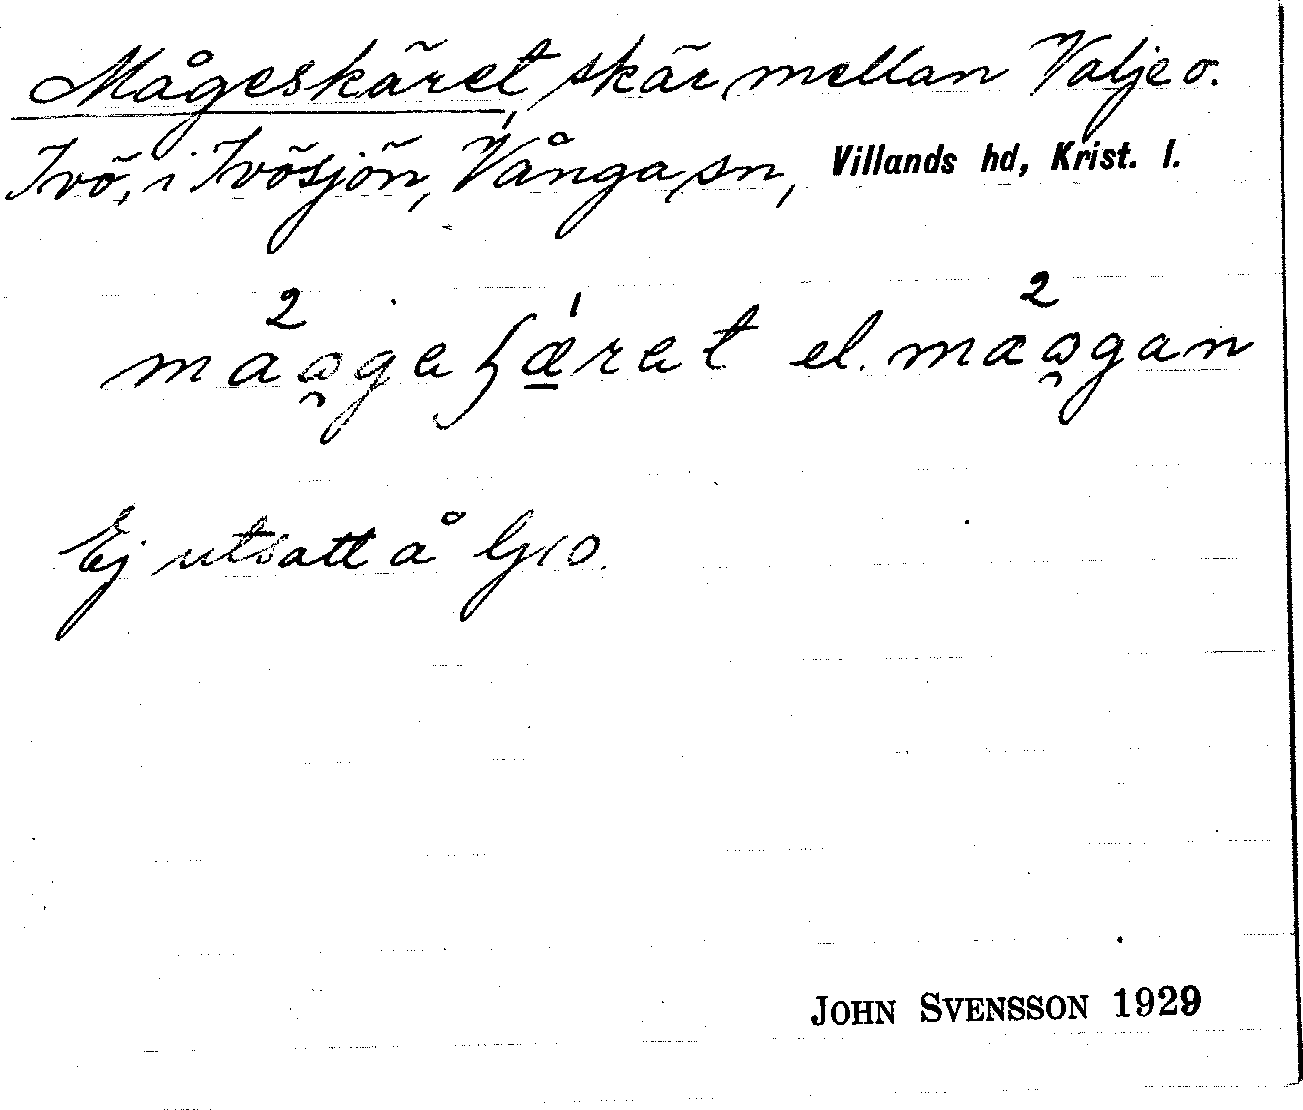 Mågeskäret, skär mellan Valje o.
Ivö, i Ivösjön, Vånga sn, Villands hd, Krist. l.
el.
Ej utsatt å G10.
JOHN SVENSSON 1929